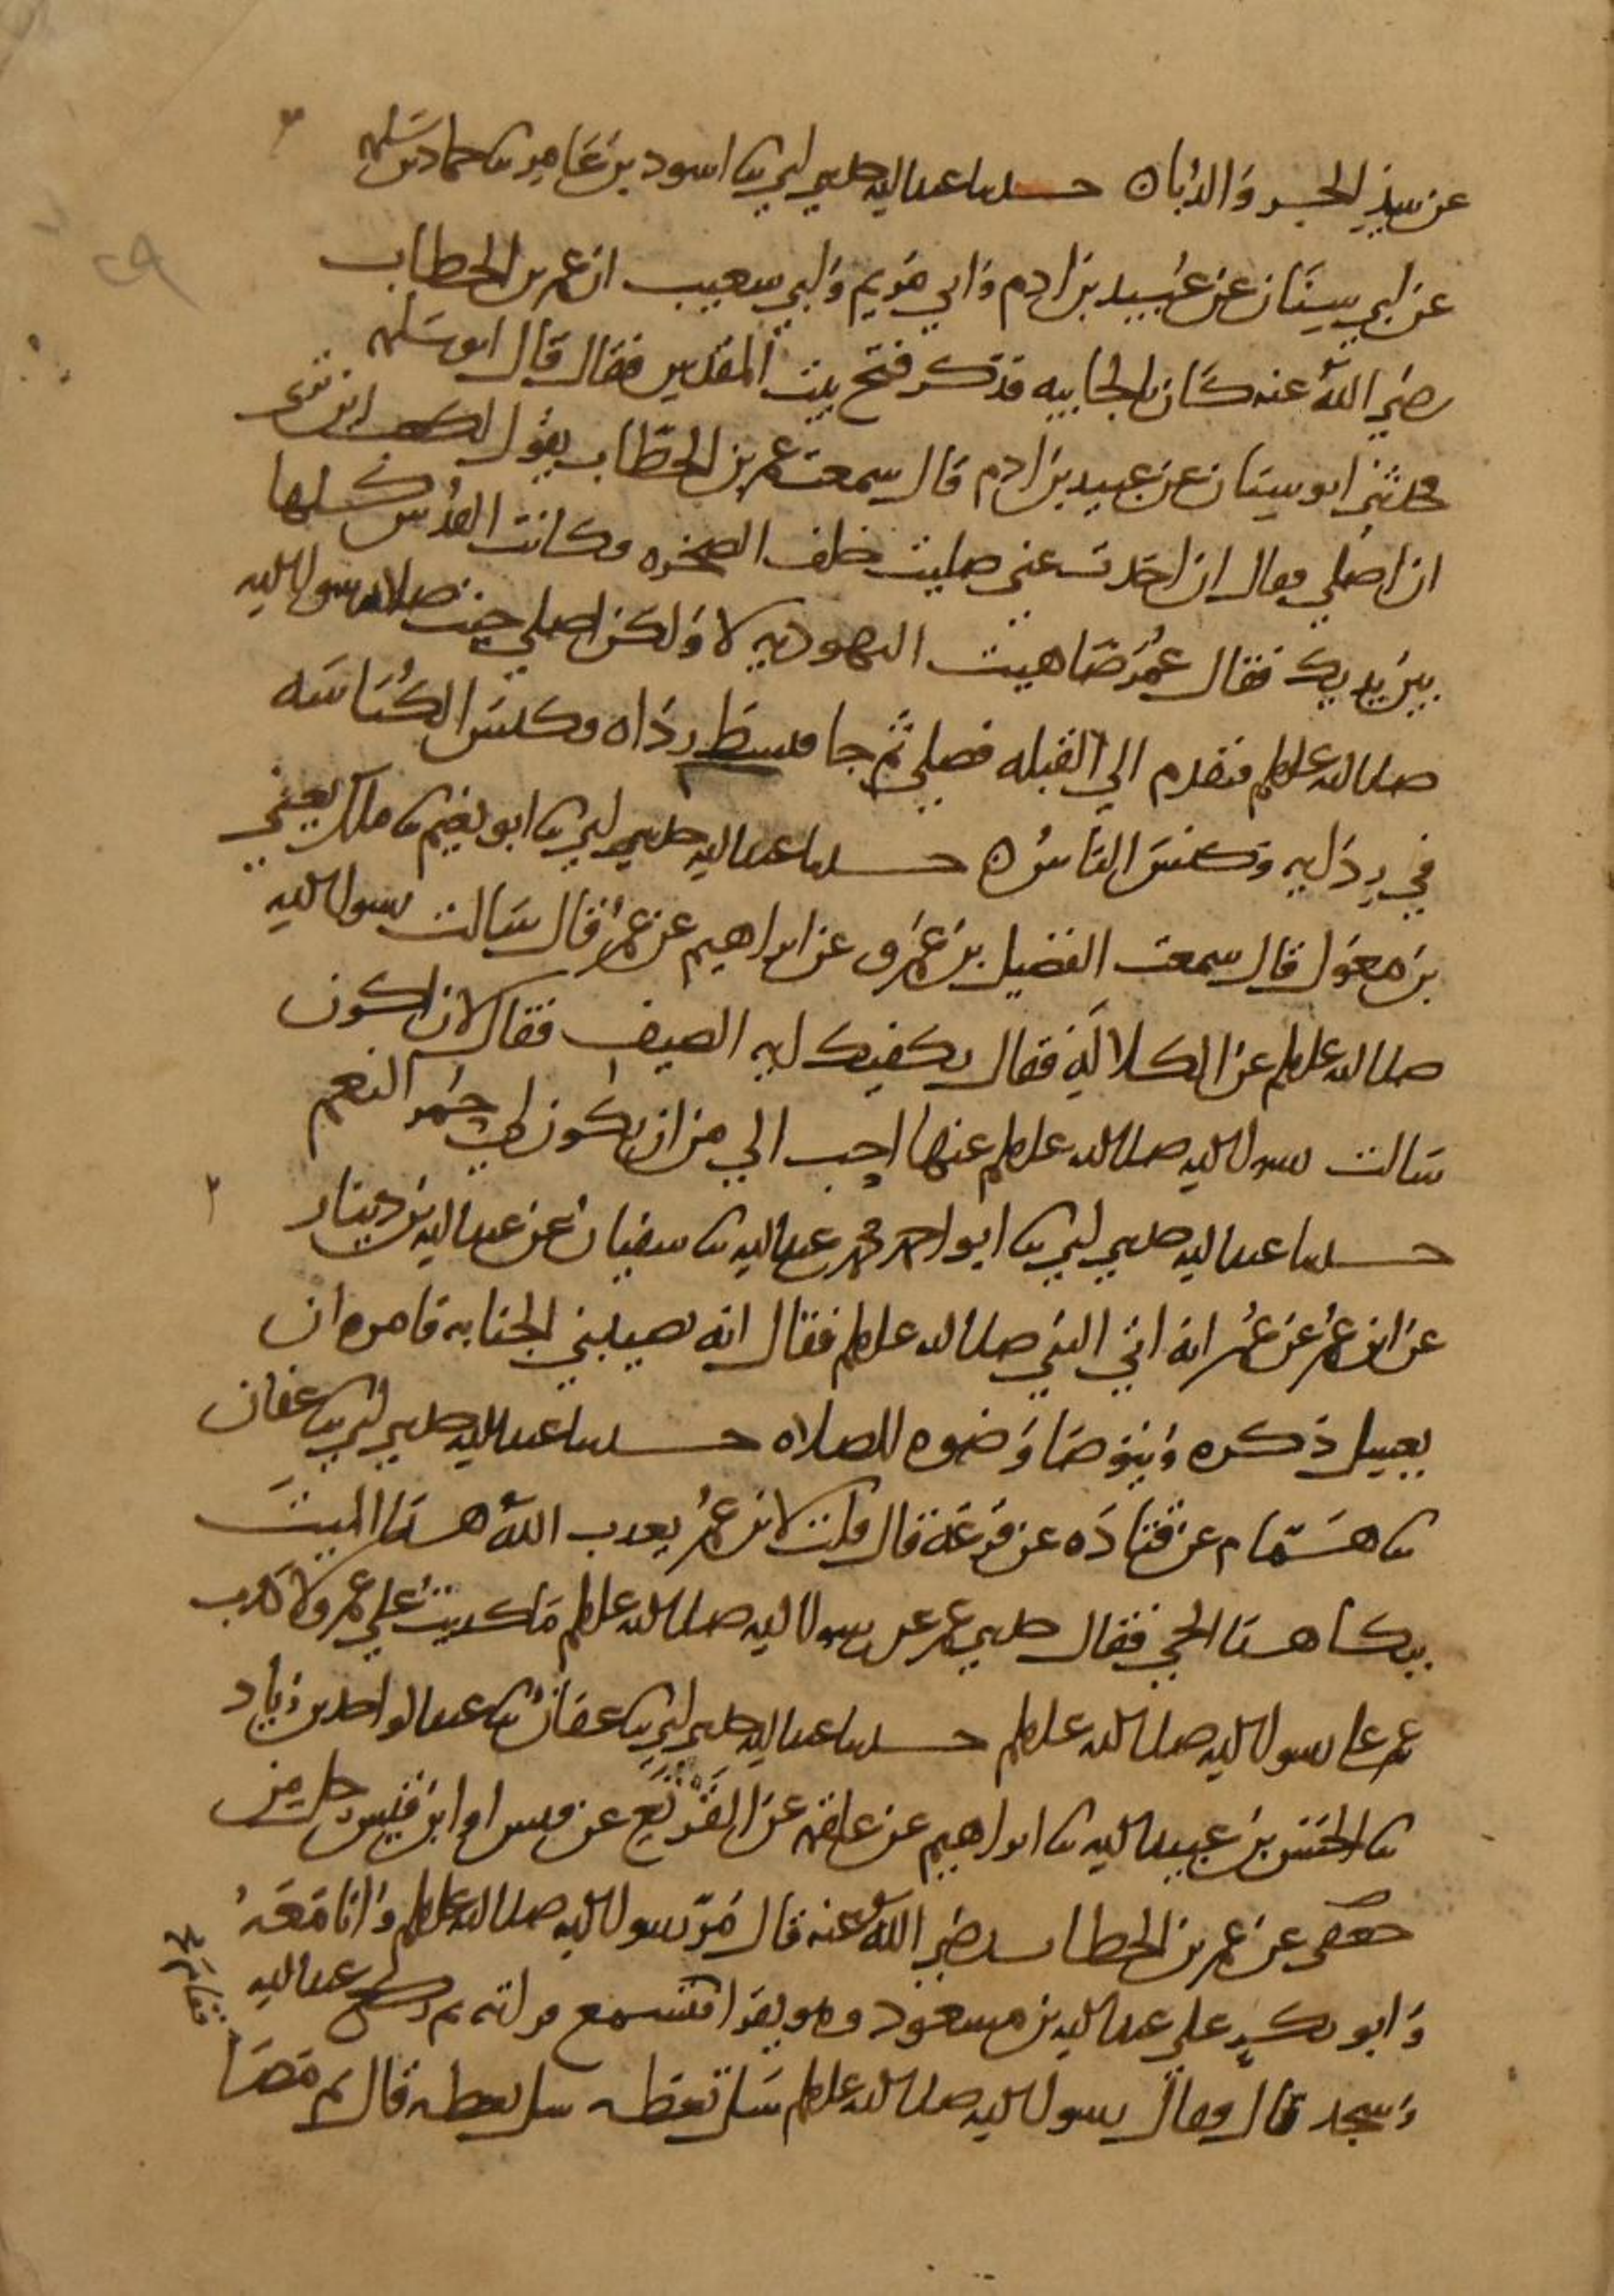 عن نبيذ الجر والدباء حدثنا عبد الله حدثني ابي ثنا اسود بن عامر ثنا حماد بن سلمه
عن ابي سنان عن عبيد بن ادم وابي مريم وابي شعيب ان عمر بن الخطاب
رضي الله عنه كان بالجابيه فذكر فتح بيت المقدس فقال قال ابو سلمه
فحدثني ابو سنان عن عبيد بن ادم قال سمعت عمر بن الخطاب يقول لكعب اين ترى
ان اصلي فقال ان اخذت عني صليت خلف الصخره فكانت القدس كلها
بين يديك فقال عمر ضاهيت اليهوديه لا ولكن اصلي حيث صلى رسول الله
صلى الله عليه وسلم فتقدم الي القبله فصلي ثم جا فبسط رداه فكنس الكناسه
في ردايه وكنس الناس ه حدثنا عبد الله حدثني ابي ثنا ابو نعيم ثنا ملك يعني
بن مغول قال سمعت الفضيل بن عمرو عن ابراهيم عن عمر قال سالت رسول الله
صلى الله عليه وسلم عن الكلالة فقال يكفيك ايه الصيف فقال لان اكون
سالت رسول الله صلى الله عليه وسلم عنها احب الي من ان يكون لي حمر النعم
حدثنا عبد الله حدثني ابي ثنا ابو احمد محمد بن عبد الله ثنا سفيان عن عبد الله بن دينار
عن ابن عمر عن عمر انه اتي النبي صلى الله عليه وسلم فقال انه تصيبني الجنابه فامره ان
يغسل ذكره ويتوضا وضوه للصلاه حدثنا عبد الله حدثني ابي ثنا عفان
ثنا همام عن قتاده عن قزعة قال قلت لابن عمر يعذب الله هذا الميت
ببكا هذا الحي فقال حدثني عمر عن رسول الله صلى الله عليه وسلم ما كذبت علي عمر ولا كذب
عمر على رسول الله صلى الله عليه وسلم حدثنا عبد الله حدثني ابي ثنا عفان ثنا عبد الواحد بن زياد
ثنا الحسن بن عبيد الله ثنا ابراهيم عن علقمه عن القرثع عن قيس او ابن قيس رجل من
جعفي عن عمر بن الخطاب رضي الله عنه قال مر رسول الله صلى الله عليه وسلم وانا معه
وابو بكر على عبد الله بن مسعود وهو يقرا فتسمع قراته ثم ركع عبد الله
وسجد قال فقال رسول الله صلى الله عليه وسلم سل تعطه سل تعطه قال ثم مضا